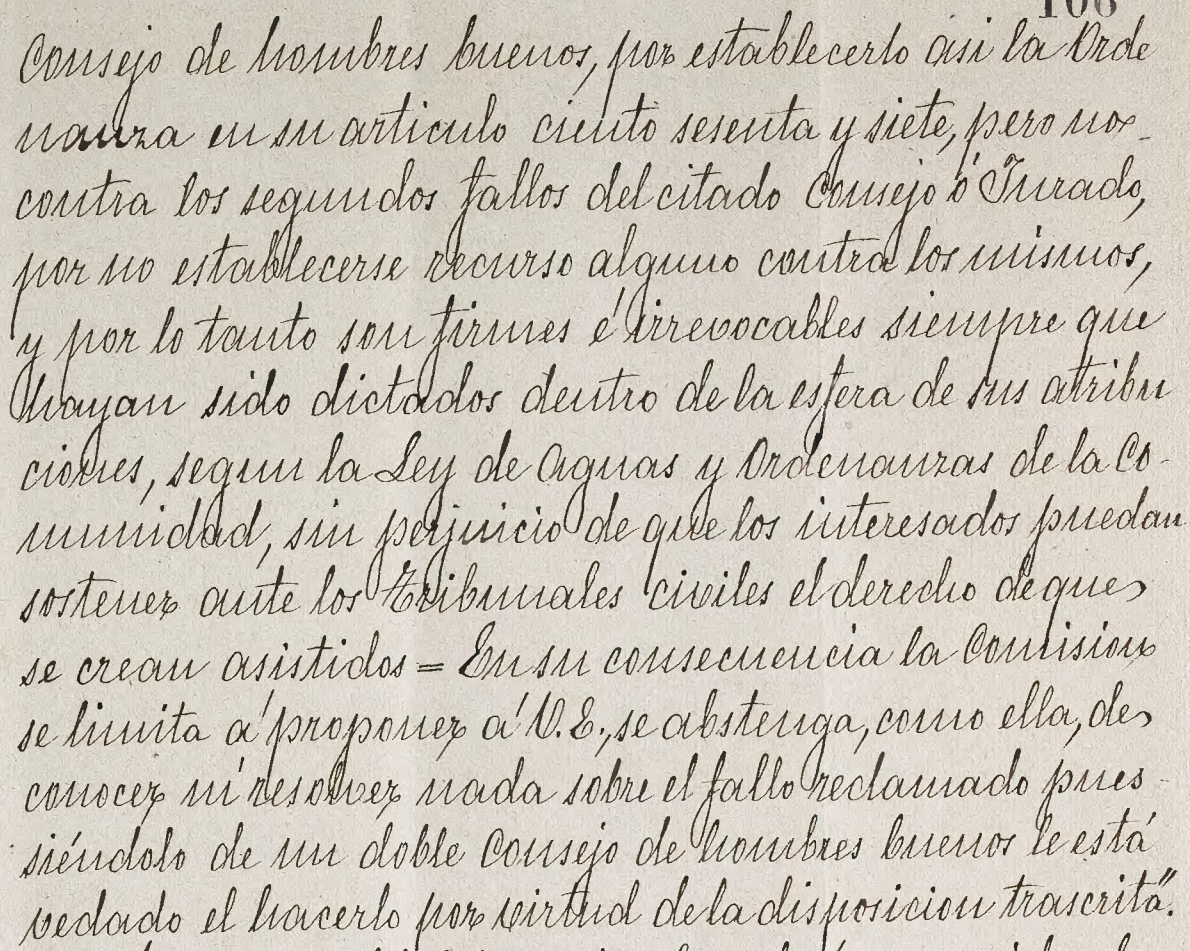 106
Consejo de hombres buenos, por establecerlo asi la Orde
nanza en su articulo ciento sesenta y siete, pero no
contra los segundos fallos del citado Consejo ó Jurado,
por no establecerse recurso alguno contra los mismos,
y por lo tanto son firmes é irrevocables siempre que
hayan sido dictados dentro de la esfera de sus atribu
ciones, segun la Ley de Aguas y Ordenanzas de la Co-
munidad, sin perjuicio de que los interesados puedan
sostener ante los Tribunales civiles el derecho de que
se crean asistidos = En su consecuencia la Comision
se limita á proponer á V.E., se abstenga, como ella, de
conocer ni resolver nada sobre el fallo reclamado pues
siéndolo de un doble Consejo de hombres buenos le está
vedado el hacerlo por virtud de la disposicion trascrita".